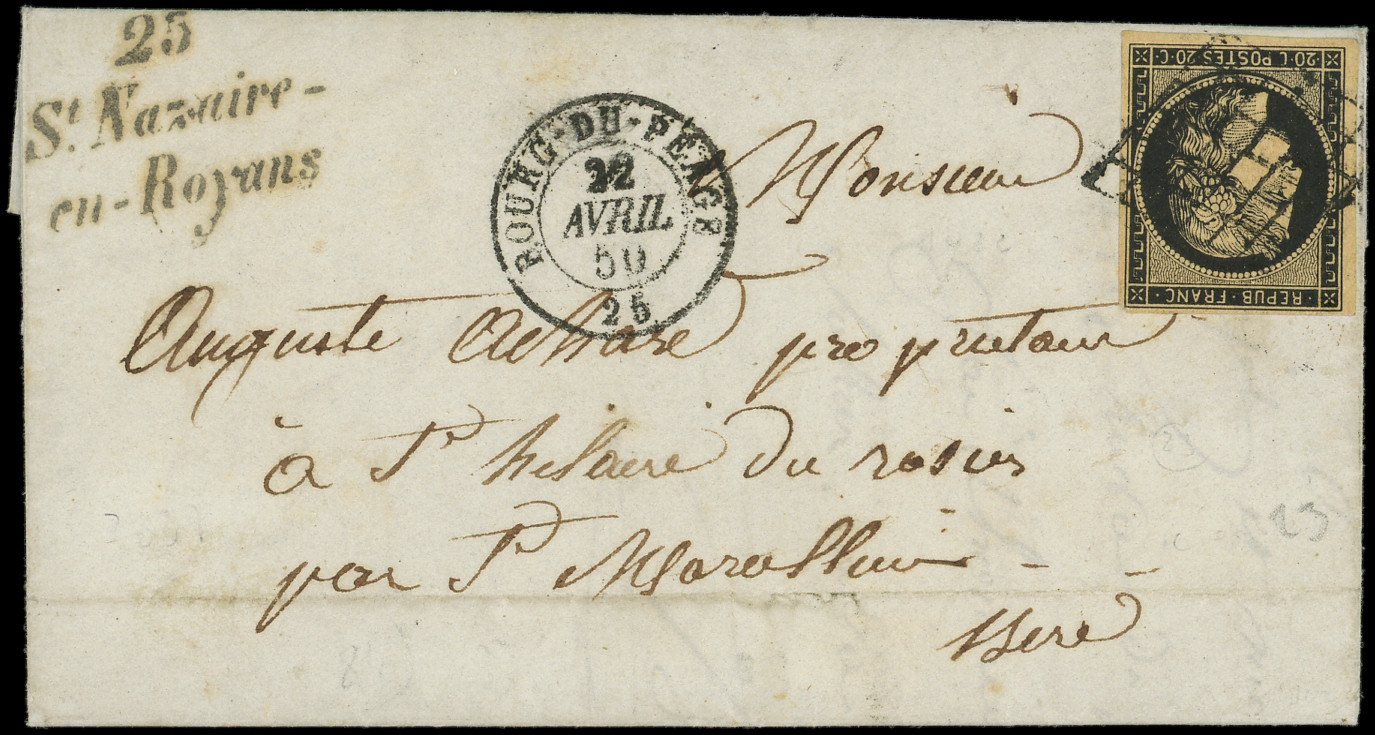 25
St. Nazaire-
en-Royans
BOURG-DU-PEAGE
22
AVRIL
50
25
20 C POSTES 20 C
REPUB FRANC
Monsieur
Auguste Achard propriétaire
à St hilaire du rosier
par St Marcellin
Isere
23
23